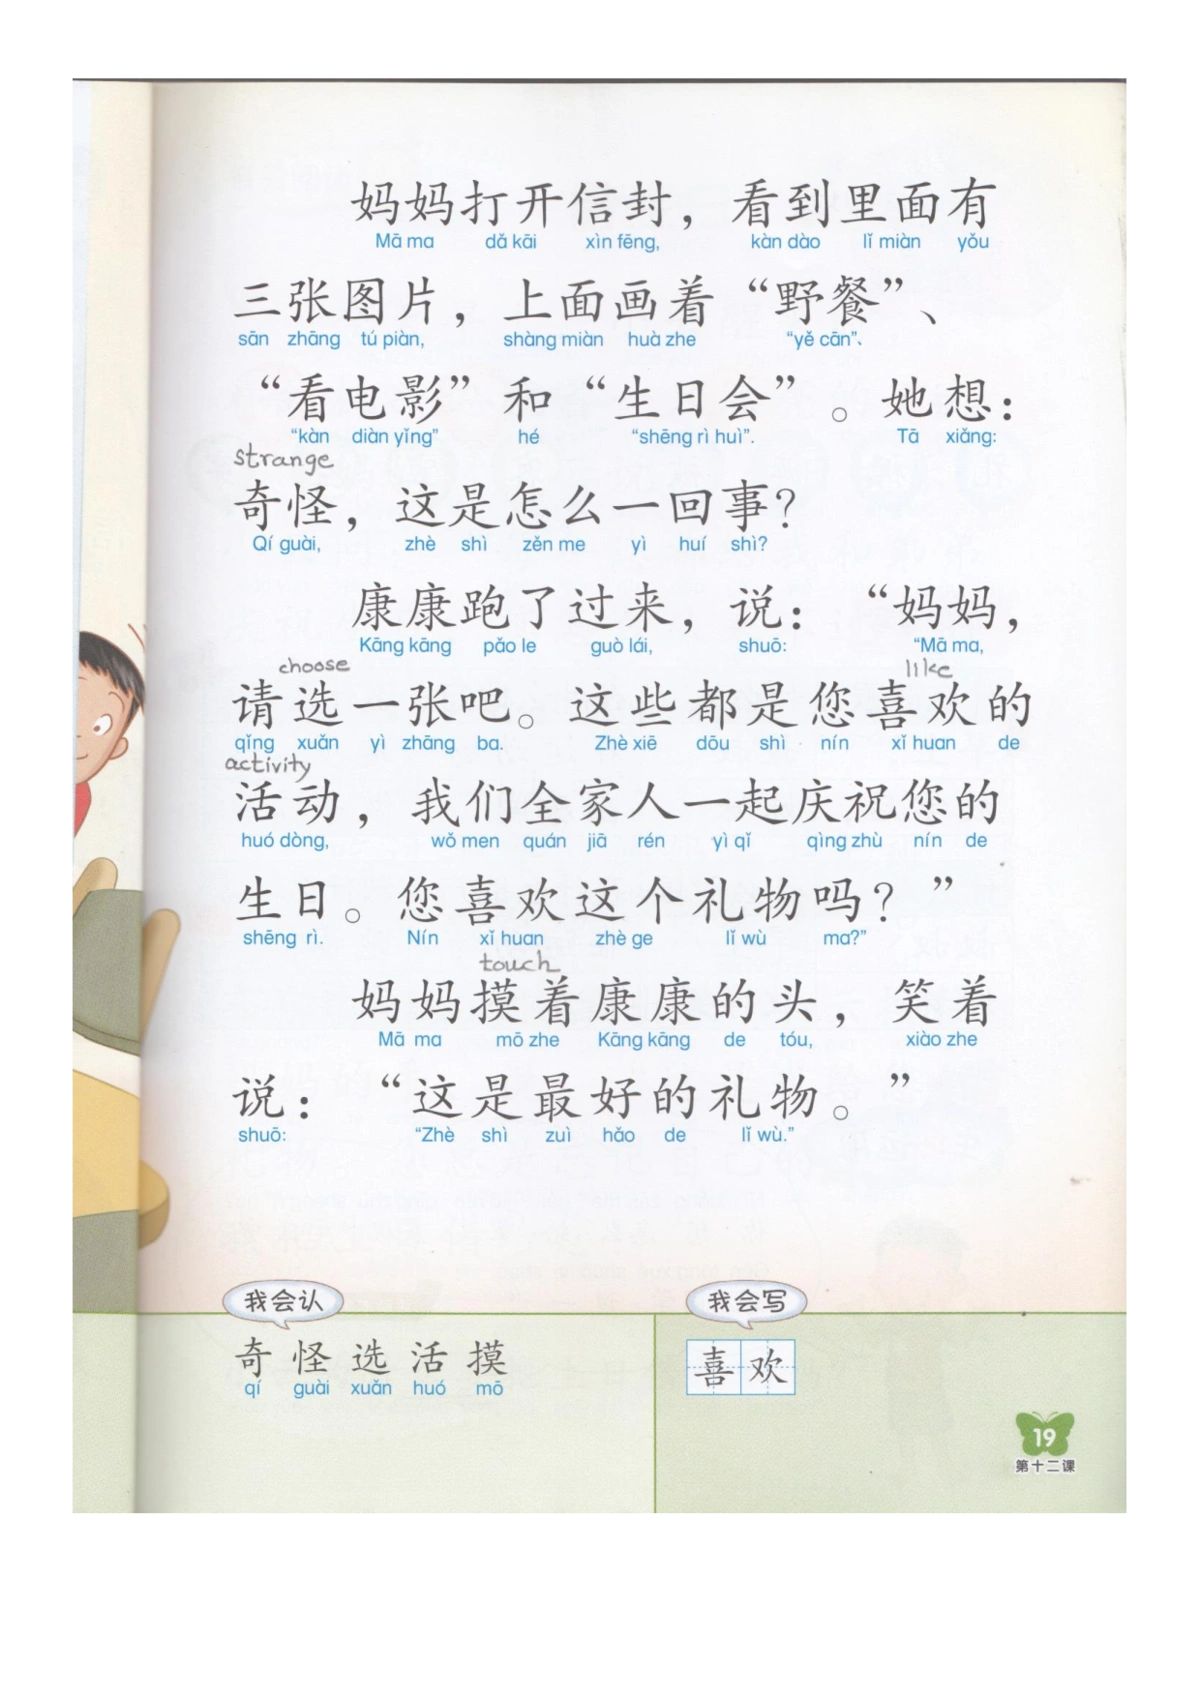 妈妈打开信封，看到里面有
Mā ma dǎ kāi xìn fēng, kàn dào lǐ miàn yǒu
三张图片，上面画着“野餐”、
sān zhāng tú piàn, shàng miàn huà zhe “yě cān”、
“看电影”和“生日会”。她想：
“kàn diàn yǐng” hé “shēng rì huì”. Tā xiǎng:
strange
奇怪，这是怎么一回事？
Qí guài, zhè shì zěn me yì huí shì?
康康跑了过来，说：“妈妈，
Kāng kāng pǎo le guò lái, shuō: “Mā ma,
choose like
请选一张吧。这些都是您喜欢的
qǐng xuǎn yì zhāng ba. Zhè xiē dōu shì nín xǐ huan de
activity
活动，我们全家人一起庆祝您的
huó dòng, wǒ men quán jiā rén yì qǐ qìng zhù nín de
生日。您喜欢这个礼物吗？”
shēng rì. Nín xǐ huan zhè ge lǐ wù ma?”
touch
妈妈摸着康康的头，笑着
Mā ma mō zhe Kāng kāng de tóu, xiào zhe
说：“这是最好的礼物。”
shuō: “Zhè shì zuì hǎo de lǐ wù.”
我会认
奇 怪 选 活 摸
qí guài xuǎn huó mō
我会写
喜 欢
19
第十二课